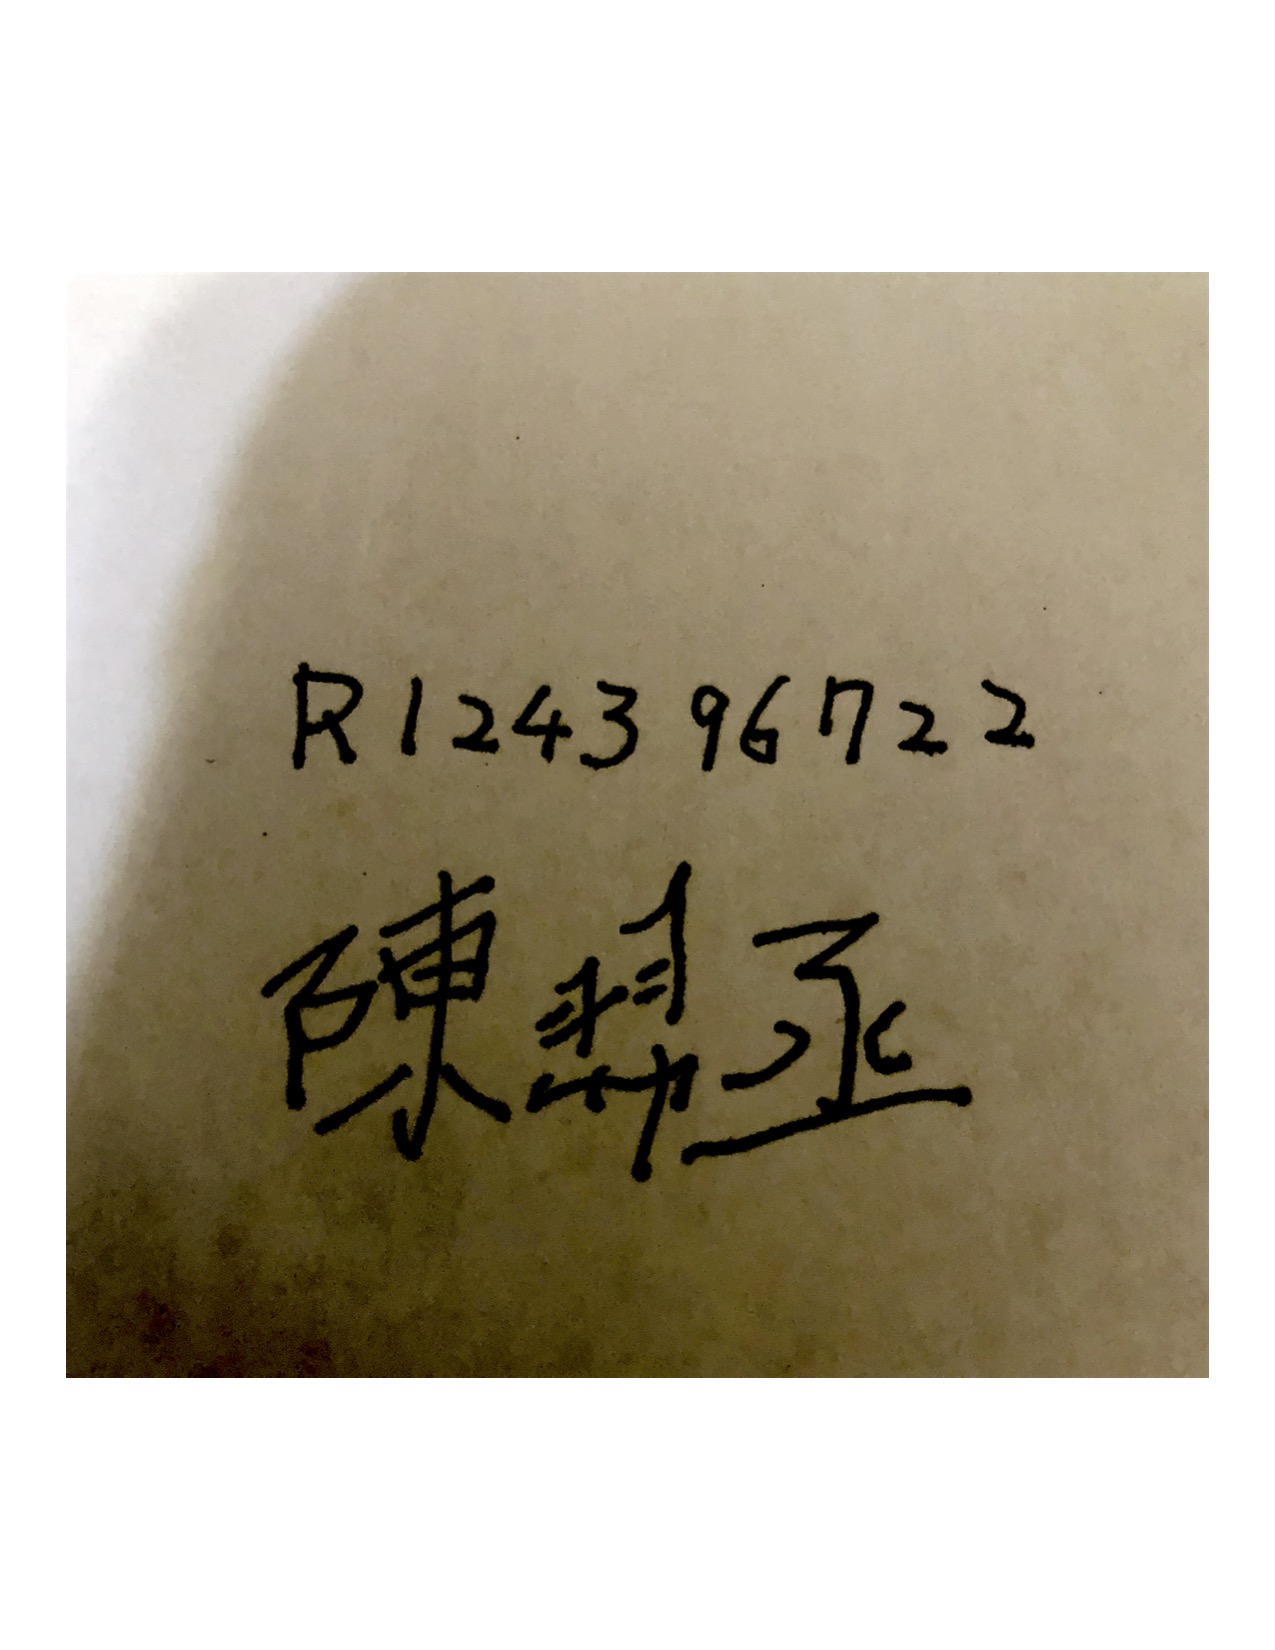 R124396722
陳羿丞